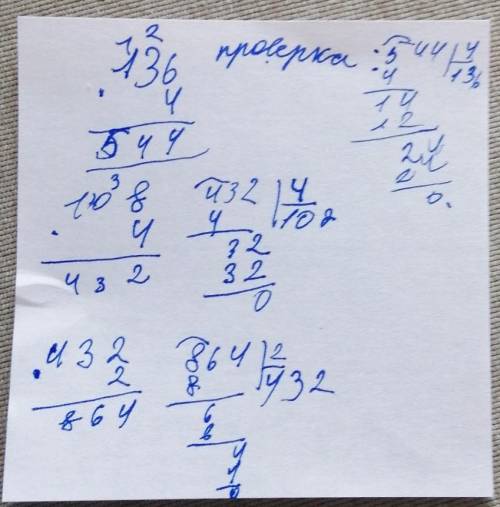 1 2
136 проверка 544 | 4
· 4
544
4
136
14
12
24
24
0.
3
108
· 4
432
432 | 4
4
108
32
32
0
432
· 2
864
864 | 2
8
432
6
6
4
4
0